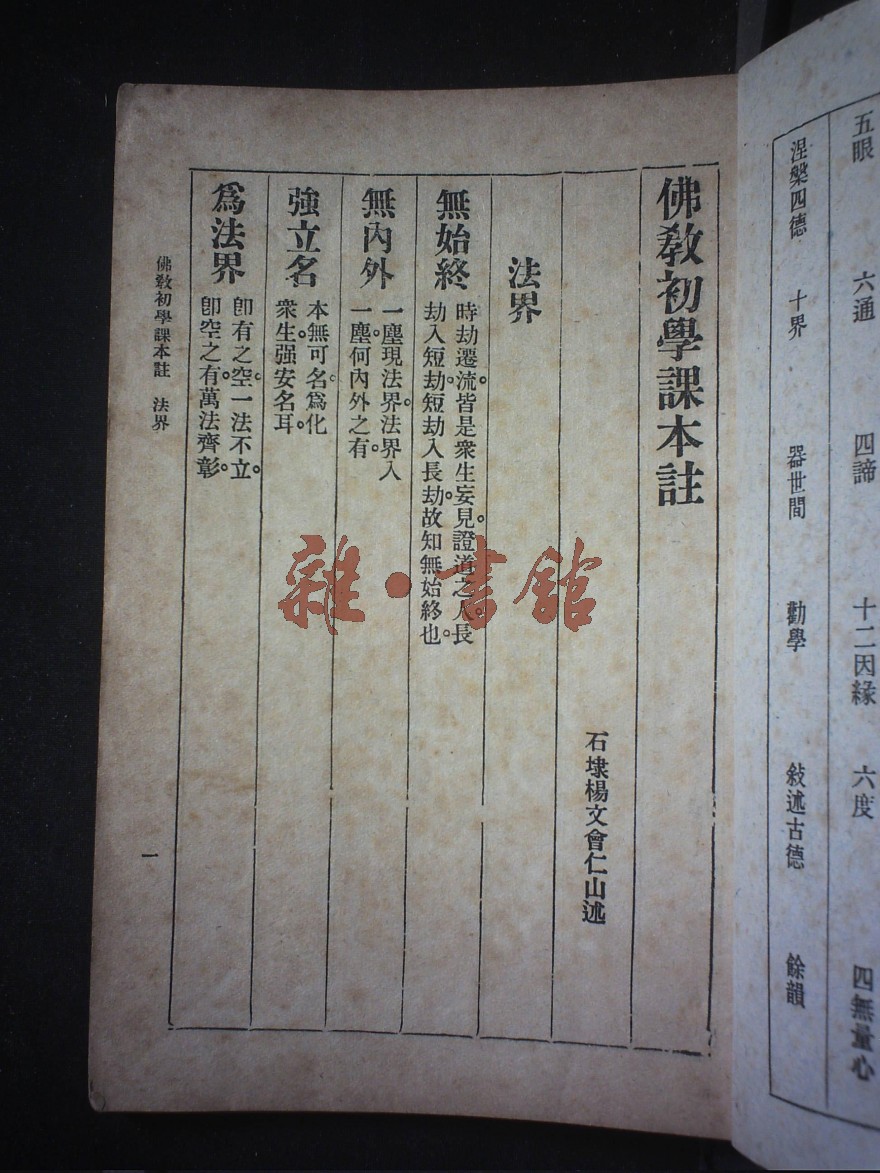 五眼　六通　四諦　十二因緣　六度　四無量心
涅槃四德　十界　器世間　勸學　敍述古德　餘韻
佛敎初學課本註
石埭楊文會仁山述
法界
無始終
時劫遷流。皆是衆生妄見。證道之人。長
劫入短劫。短劫入長劫。故知無始終也。
無內外
一塵現法界。法界入
一塵。何內外之有。
強立名
本無可名。爲化
衆生。强安名耳。
爲法界
卽有之空。一法不立。
卽空之有。萬法齊彰。
佛敎初學課本註　法界
一
雜·書館